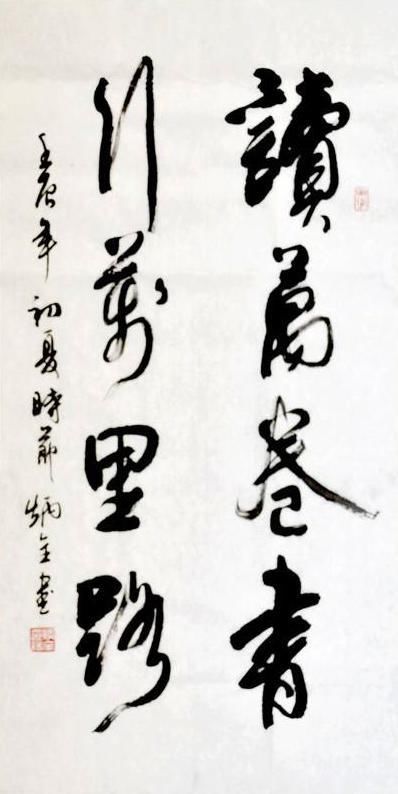 讀萬卷書
行萬里路
壬辰年初夏時節炳全書